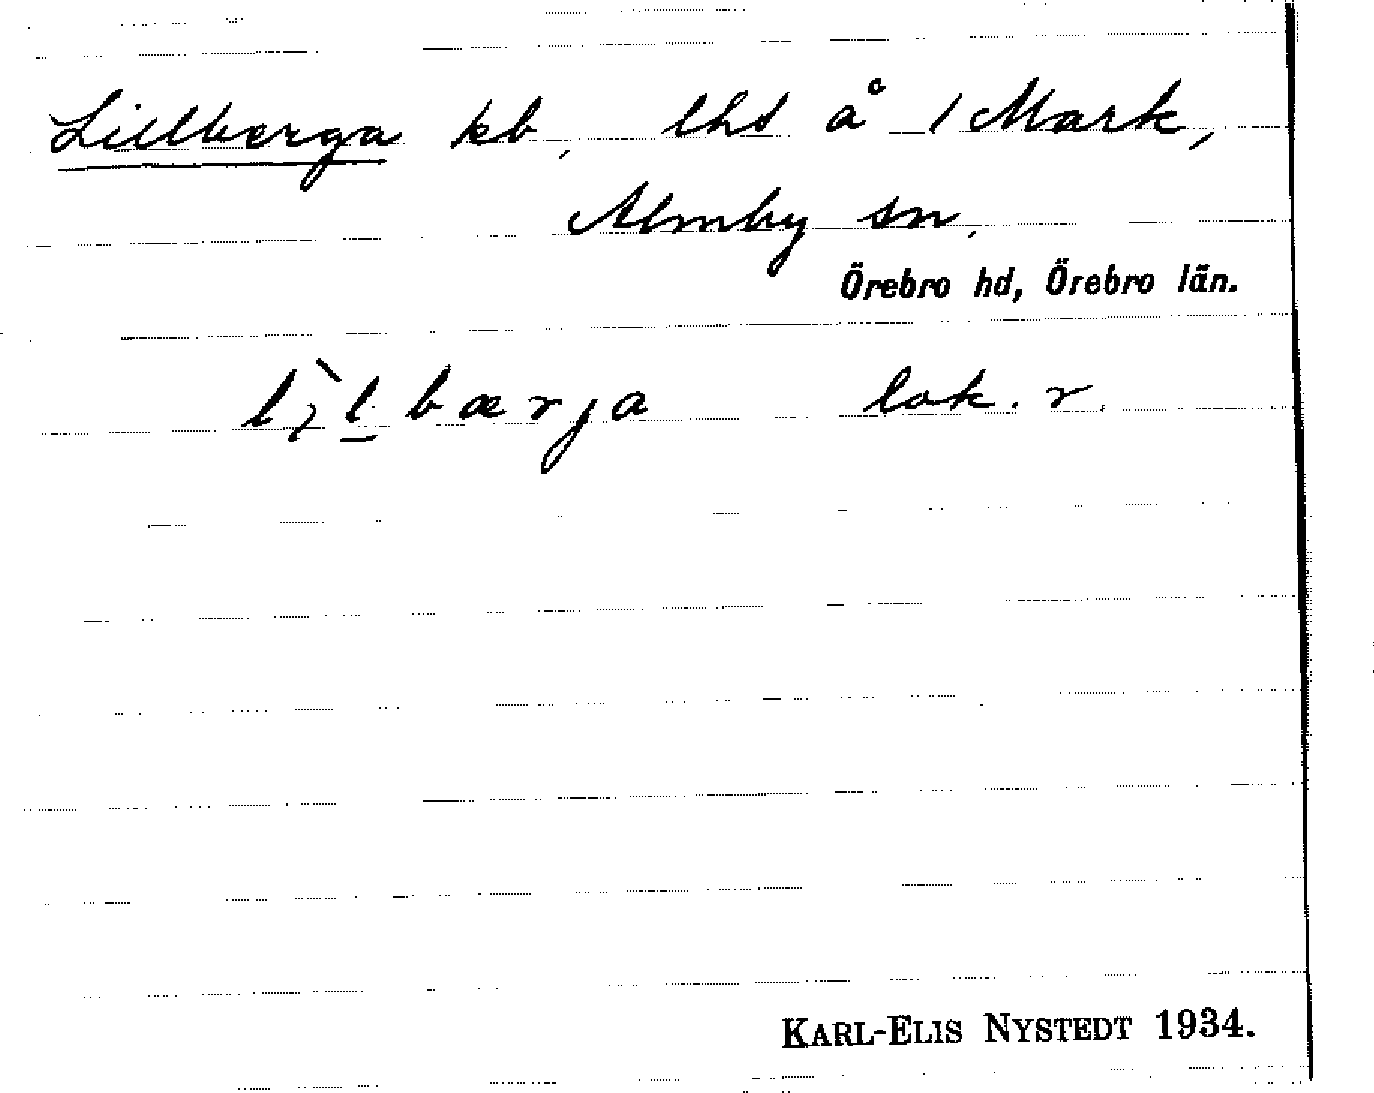 Lillberga kb, lhs å 1 Mark,
Almby sn,
Örebro hd, Örebro län.
lìlbærja lok. r.
KARL-ELIS NYSTEDT 1934.